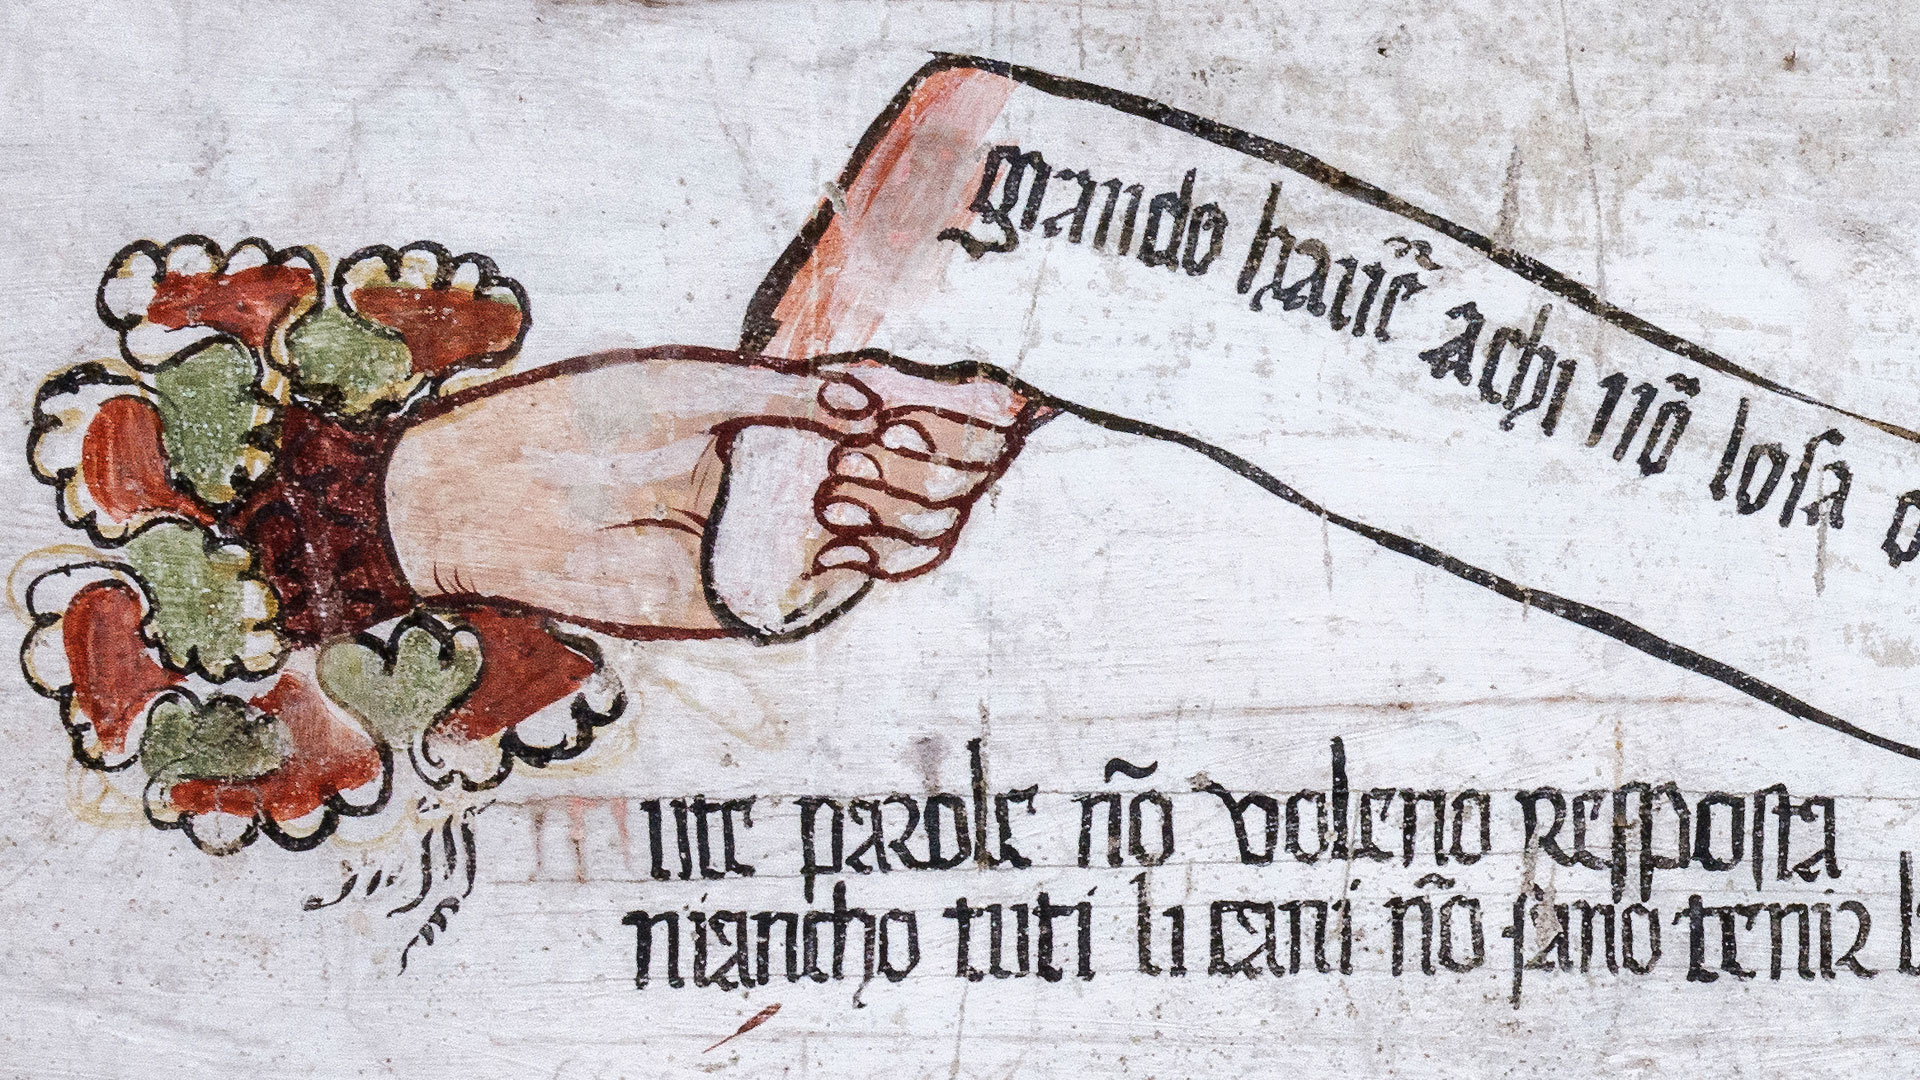 grando hauẽ achi nõ losa
ute parole ñõ voleno resposta
niancho tuti li cani ñõ sano tenir